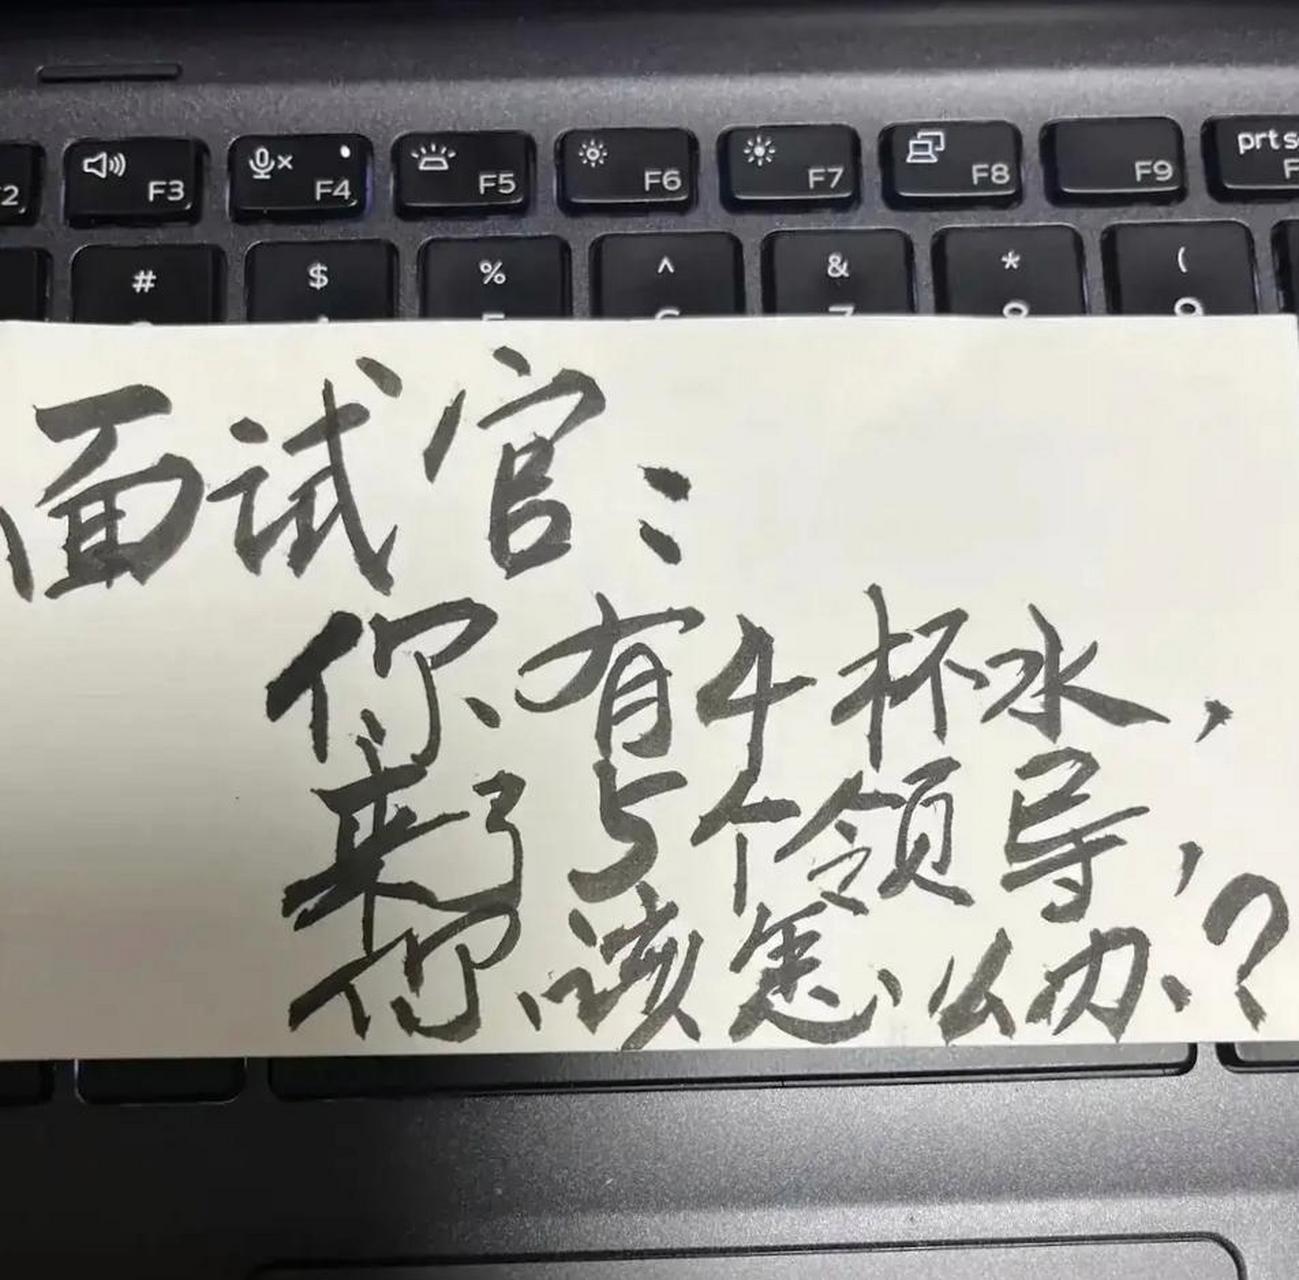 F3 F4 F5 F6 F7 F8 F9 prt s
# $ % ^ & * (
面试官：
你有4杯水，
来了5个领导，
你该怎么办？